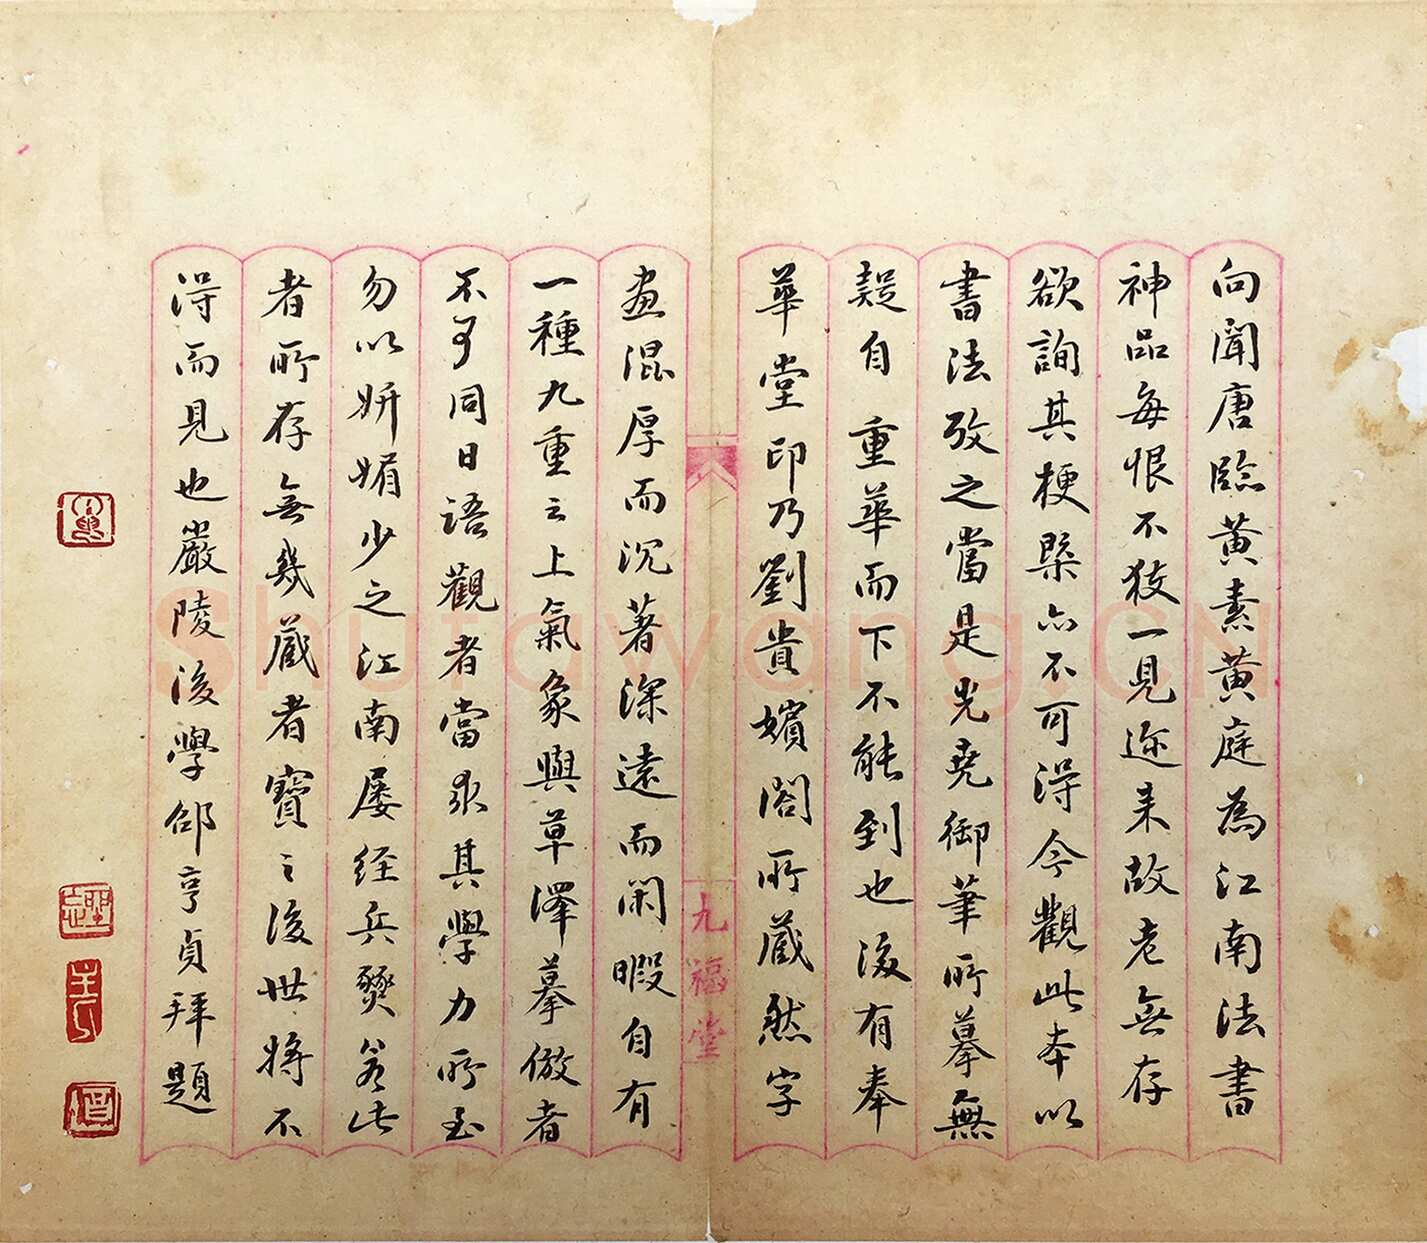 向聞唐臨黃素黃庭為江南法書
神品每恨不獲一見邇來故老無存
欲詢其梗槩亦不可得今觀此本以
書法攷之當是光堯御筆所摹無
疑自重華而下不能到也後有奉
華堂印乃劉貴嬪閣所藏然字
畫混厚而沉著深遠而閑暇自有
一種九重之上氣象與草澤摹倣者
不可同日語觀者當求其學力所至
勿以妍媚少之江南屢経兵燹若此
者所存無幾蔵者寶之後世將不
得而見也嚴陵後學邵亨貞拜題
九福堂
Shufawang.CN